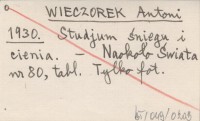 WIECZOREK Antoni
1930. Studjum śniegu i
cienia. – Naokoło Świata
nr 80, tabl. Tylko fot.